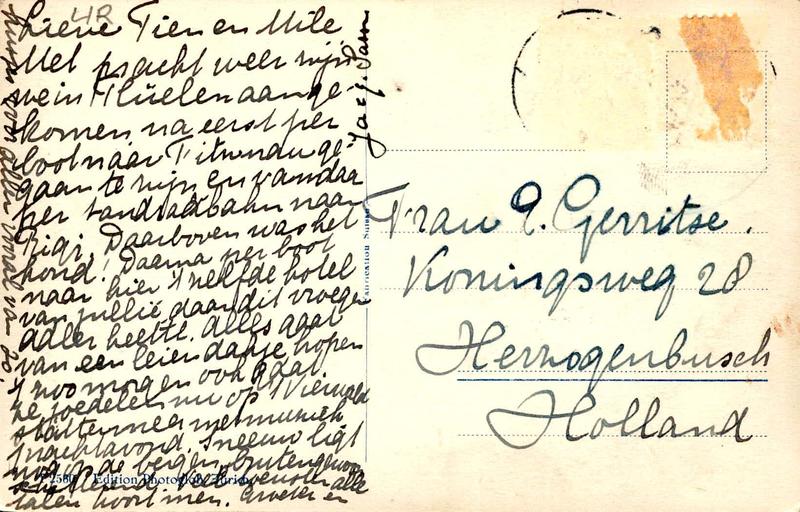 4R
Lieve Tien en Mile
Met pracht weer zijn
we in Flüelen aange-
komen na eerst per
boot naar Fitznau ge-
gaan te zijn en vandaar
per tandradbahn naar
Rigi. Daarboven was het
koud! Daarna per boot
naar hier 't zelfde hotel
van jullie daar dit vroeger
adler heette. Alles gaat
van een leien dakje hopen
't zoo morgen ook gaat
ze joedelen nu op 't Vierwald
stättermeer met muziek
Sneeuw ligt
nog op de bergen
alle
talen hoort men. Groeten en
voor allen van Jo.
Frau E. Gerritse.
Koningsweg 28
Herzogenbusch
Holland
Edition Photoglob Zürich